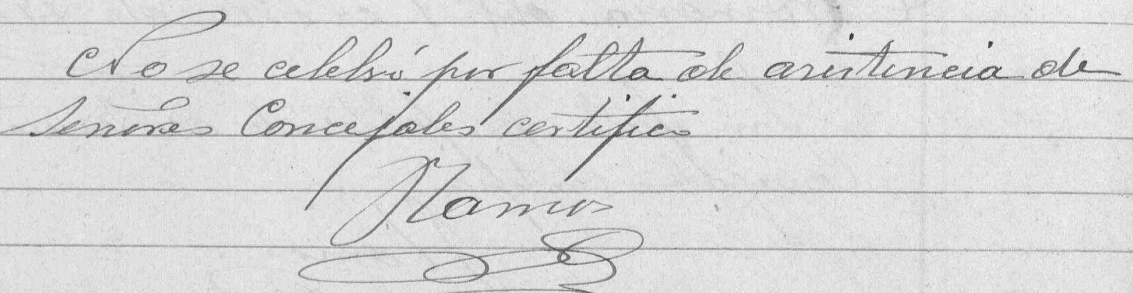 No se celebró por falta de asistencia de
señores Concejales certifico
Ramos